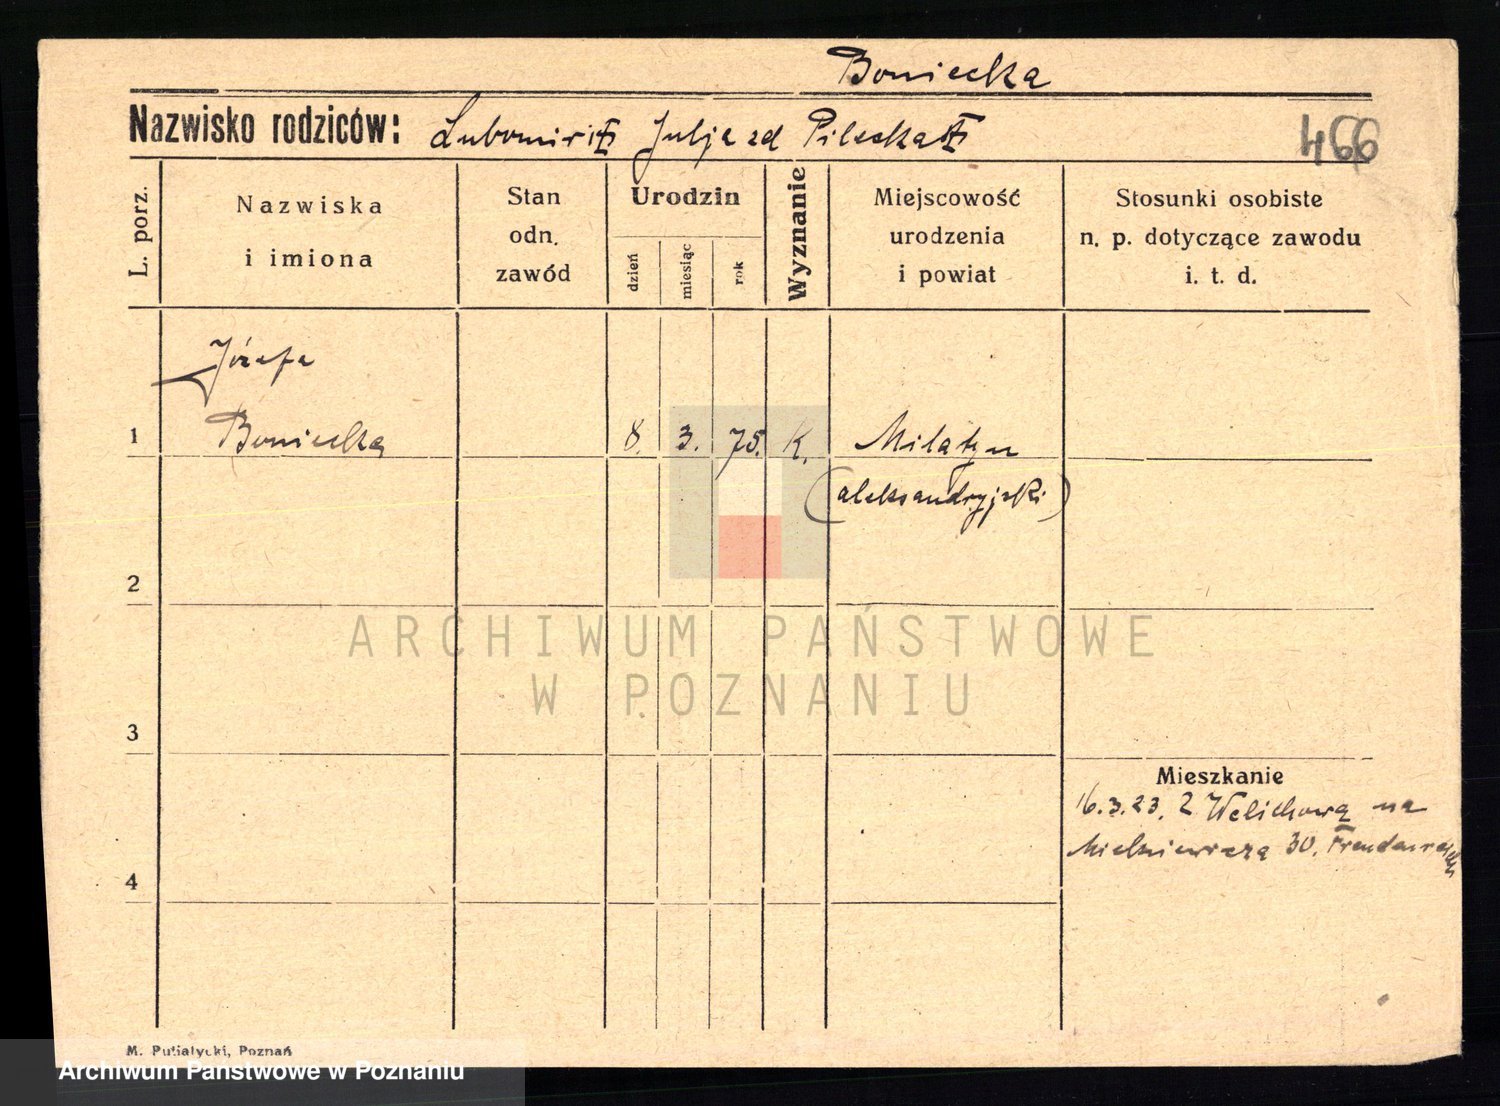 Boniecka
Nazwisko rodziców: Lubomir i Julja zd Pilecka
466
L. porz.
Nazwiska
i imiona
Stan
odn.
zawód
Urodzin
dzień
miesiąc
rok
Wyznanie
Miejscowość
urodzenia
i powiat
Stosunki osobiste
n. p. dotyczące zawodu
i. t. d.
Józefa
1 Boniecka 8. 3. 75. K. Milatyn
(aleksandryjski)
2
ARCHIWUM PAŃSTWOWE
W POZNANIU
3
Mieszkanie
16.3.23. z Welichową na
30.
4
M. Putiatycki, Poznań
Archiwum Państwowe w Poznaniu